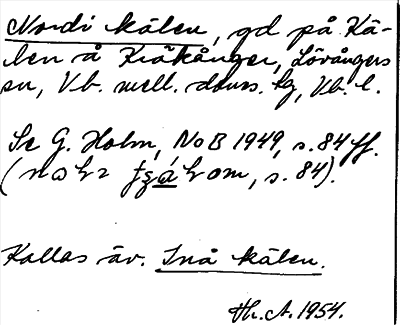 Nordi kälen, gd på Kä-
len å Kräkånger, Lövångers
sn, Vb. mell. doms. hg, Vb. l.
Se G. Holm, NoB 1949, s. 84 ff.
s. 84).
Kallas äv. Inå kälen.
Th. A. 1954.